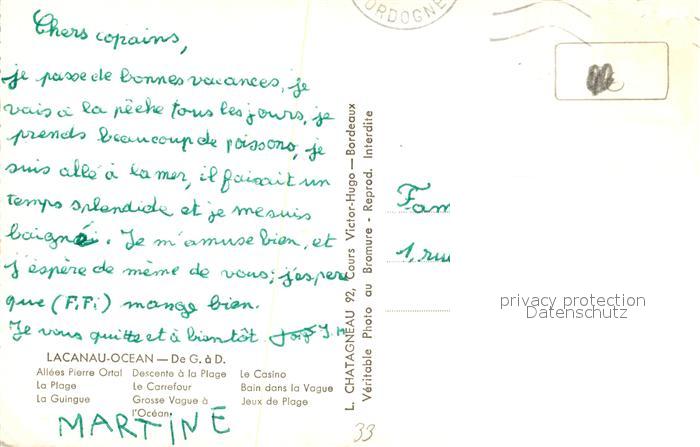 Chers copains,
je passe de bonnes vacances, je
vais à la pêche tous les jours, je
prends beaucoup de poissons, je
suis allé à la mer, il faisait un
temps splendide et je me suis
baigné. Je m'amuse bien, et
j'éspère de même de vous; j'espere
que (F.Fi) mange bien.
Je vous quitte et à bientôt.
LACANAU-OCEAN — De G. à D.
Allées Pierre Ortal Descente à la Plage Le Casino
La Plage Le Carrefour Bain dans la Vague
La Guingue Grosse Vague à l'Océan Jeux de Plage
MARTINE
33
L. CHATAGNEAU 92, Cours Victor-Hugo — Bordeaux
Véritable Photo au Bromure - Reprod. Interdite
ORDOGNE
Fam
1, rue
privacy protection
Datenschutz